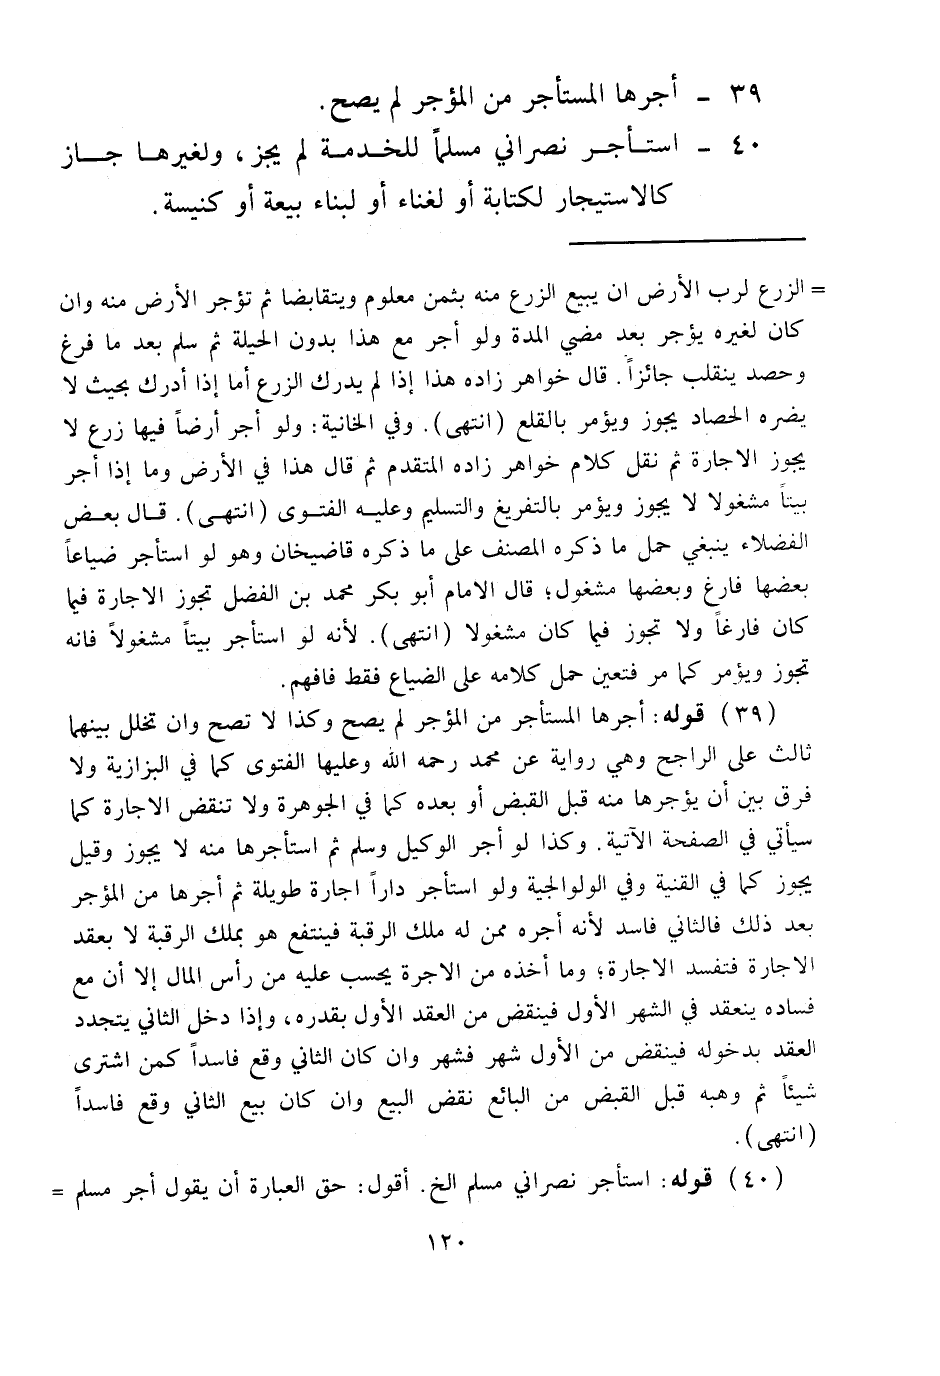 ٣٩ - أجرها المستأجر من المؤجر لم يصح.
٤٠ - استأجر نصراني مسلماً للخدمة لم يجز، ولغيرها جاز
كالاستيجار لكتابة أو لغناء أو لبناء بيعة أو كنيسة.
= الزرع لرب الأرض ان يبيع الزرع منه بثمن معلوم ويتقابضا ثم تؤجر الأرض منه وان
كان لغيره يؤجر بعد مضي المدة ولو أجر مع هذا بدون الحيلة ثم سلم بعد ما فرغ
وحصد ينقلب جائزاً. قال خواهر زاده هذا إذا لم يدرك الزرع أما إذا أدرك بحيث لا
يضره الحصاد يجوز ويؤمر بالقلع (انتهى). وفي الخانية: ولو أجر أرضاً فيها زرع لا
يجوز الاجارة ثم نقل كلام خواهر زاده المتقدم ثم قال هذا في الأرض وما إذا أجر
بيتاً مشغولا لا يجوز ويؤمر بالتفريغ والتسليم وعليه الفتوى (انتهى). قال بعض
الفضلاء ينبغي حمل ما ذكره المصنف على ما ذكره قاضيخان وهو لو استأجر ضياعاً
بعضها فارغ وبعضها مشغول؛ قال الامام أبو بكر محمد بن الفضل تجوز الاجارة فيما
كان فارغاً ولا تجوز فيما كان مشغولا (انتهى). لأنه لو استأجر بيتاً مشغولاً فانه
تجوز ويؤمر كما مر فتعين حمل كلامه على الضياع فقط فافهم.
(٣٩) قوله: أجرها المستأجر من المؤجر لم يصح وكذا لا تصح وان تخلل بينهما
ثالث على الراجح وهي رواية عن محمد رحمه الله وعليها الفتوى كما في البزازية ولا
فرق بين أن يؤجرها منه قبل القبض أو بعده كما في الجوهرة ولا تنقض الاجارة كما
سيأتي في الصفحة الآتية. وكذا لو أجر الوكيل وسلم ثم استأجرها منه لا يجوز وقيل
يجوز كما في القنية وفي الولوالجية ولو استأجر داراً اجارة طويلة ثم أجرها من المؤجر
بعد ذلك فالثاني فاسد لأنه أجره ممن له ملك الرقبة فينتفع هو بملك الرقبة لا بعقد
الاجارة فتفسد الاجارة؛ وما أخذه من الاجرة يحسب عليه من رأس المال إلا أن مع
فساده ينعقد في الشهر الأول فينقض من العقد الأول بقدره، وإذا دخل الثاني يتجدد
العقد بدخوله فينقض من الأول شهر فشهر وان كان الثاني وقع فاسداً كمن اشترى
شيئاً ثم وهبه قبل القبض من البائع نقض البيع وان كان بيع الثاني وقع فاسداً
(انتهى).
(٤٠) قوله: استأجر نصراني مسلم الخ. أقول: حق العبارة أن يقول أجر مسلم =
١٢٠